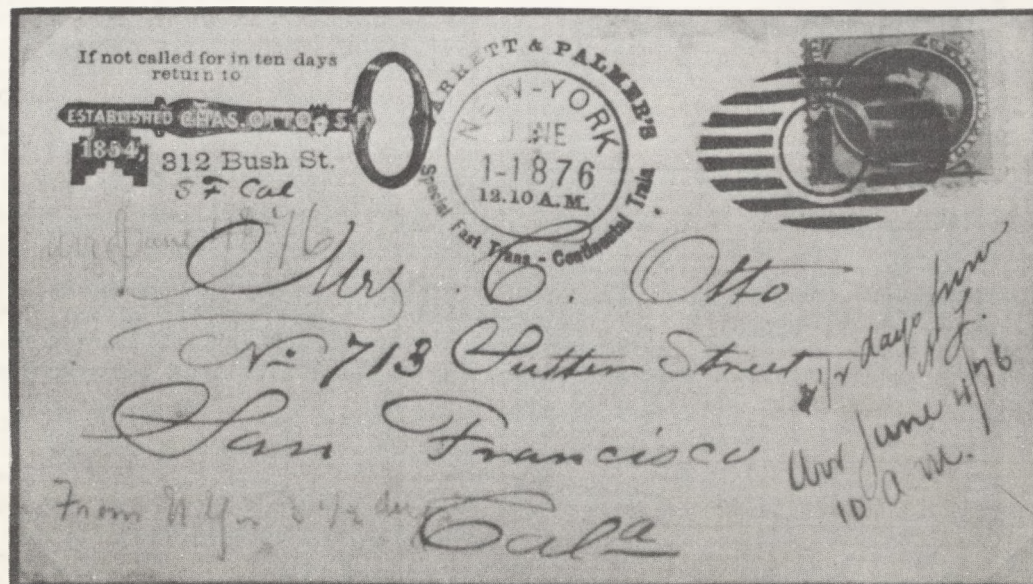 If not called for in ten days
return to
ESTABLISHED CHAS. OTTO'S
1854,
312 Bush St.
S F Cal
JARRETT & PALMER'S
NEW-YORK
JUNE
1-1876
12.10 A.M.
Special Fast Trans.-Continental Train
June
Mrs. C. Otto
No 713 Sutter Street
San Francisco
Cala
1/2 days from
N Y.
Arr June 4/76
10 a m.
From N Y in 3 1/2 days